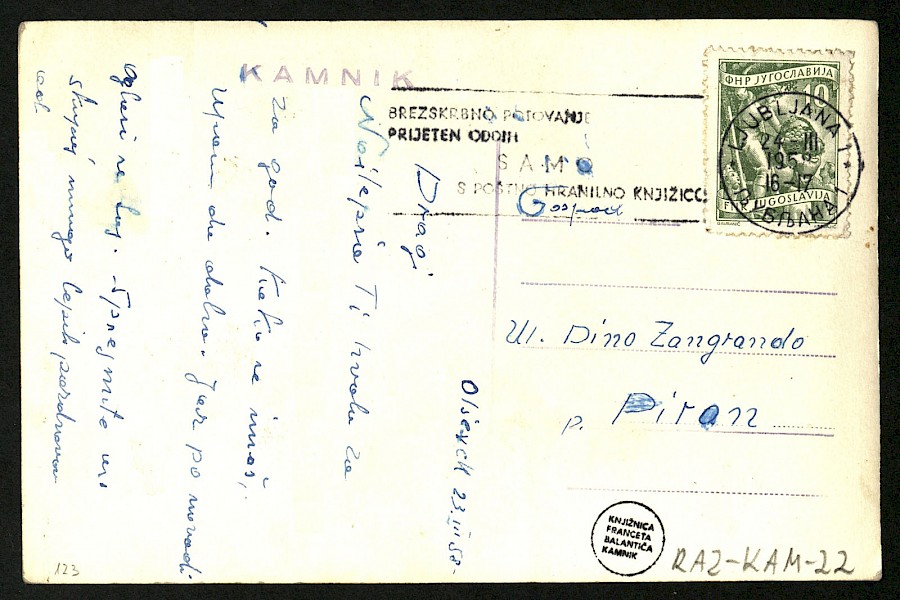 KAMNIK
BREZSKRBNO POTOVANJE
PRIJETEN ODDIH
SAMO
S POŠTNO HRANILNO KNJIŽICO
ФНР ЈУГОСЛАВИЈА
10
FNR JUGOSLAVIJA
LJUBLJANA 1
24 III
1958
16-17
ЉУБЉАНА 1
23. III 58.
Dragi
Najlepša Ti hvala za
za god. Kako se imaš,
dobro. Jaz po navadi
Sprejmite vsi
skupaj mnogo lepih pozdravov
od
Gospod
Ul. Dino Zangrando
p. Piran
KNJIŽNICA
FRANCETA
BALANTIČA
KAMNIK
RAZ-KAM-22
123